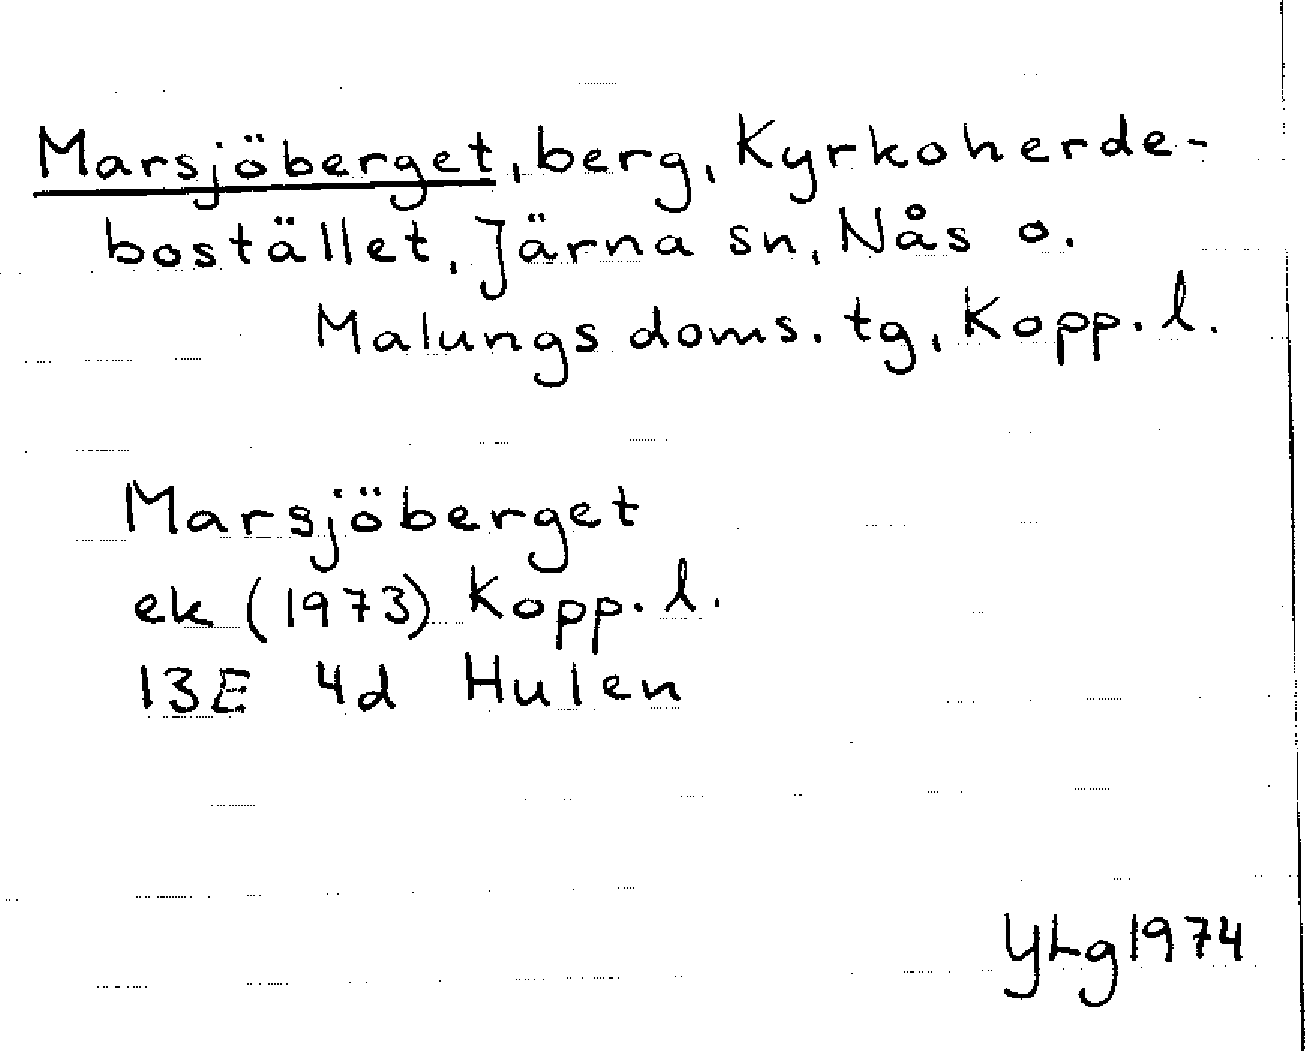 Marsjöberget, berg, Kyrkoherde-
bostället, Järna sn, Nås o.
Malungs doms. tg, Kopp. l.
Marsjöberget
ek (1973) Kopp. l.
13E 4d Hulen
YLg 1974